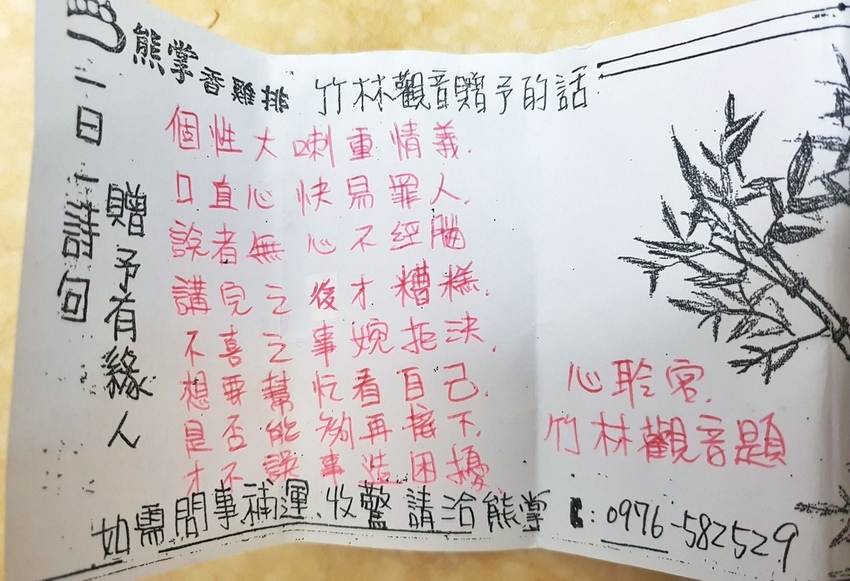 熊掌香雞排
竹林觀音贈予的話
一日一詩句
贈予有緣人
個性大喇重情義.
口直心快易罪人.
說者無心不經腦
講完之後才糟糕.
不喜之事婉拒決.
想要幫忙看自己.
是否能夠再接下.
才不誤事造困擾.
心聆客.
竹林觀音題
如需問事補運、收驚請洽熊掌 : 0976-582529